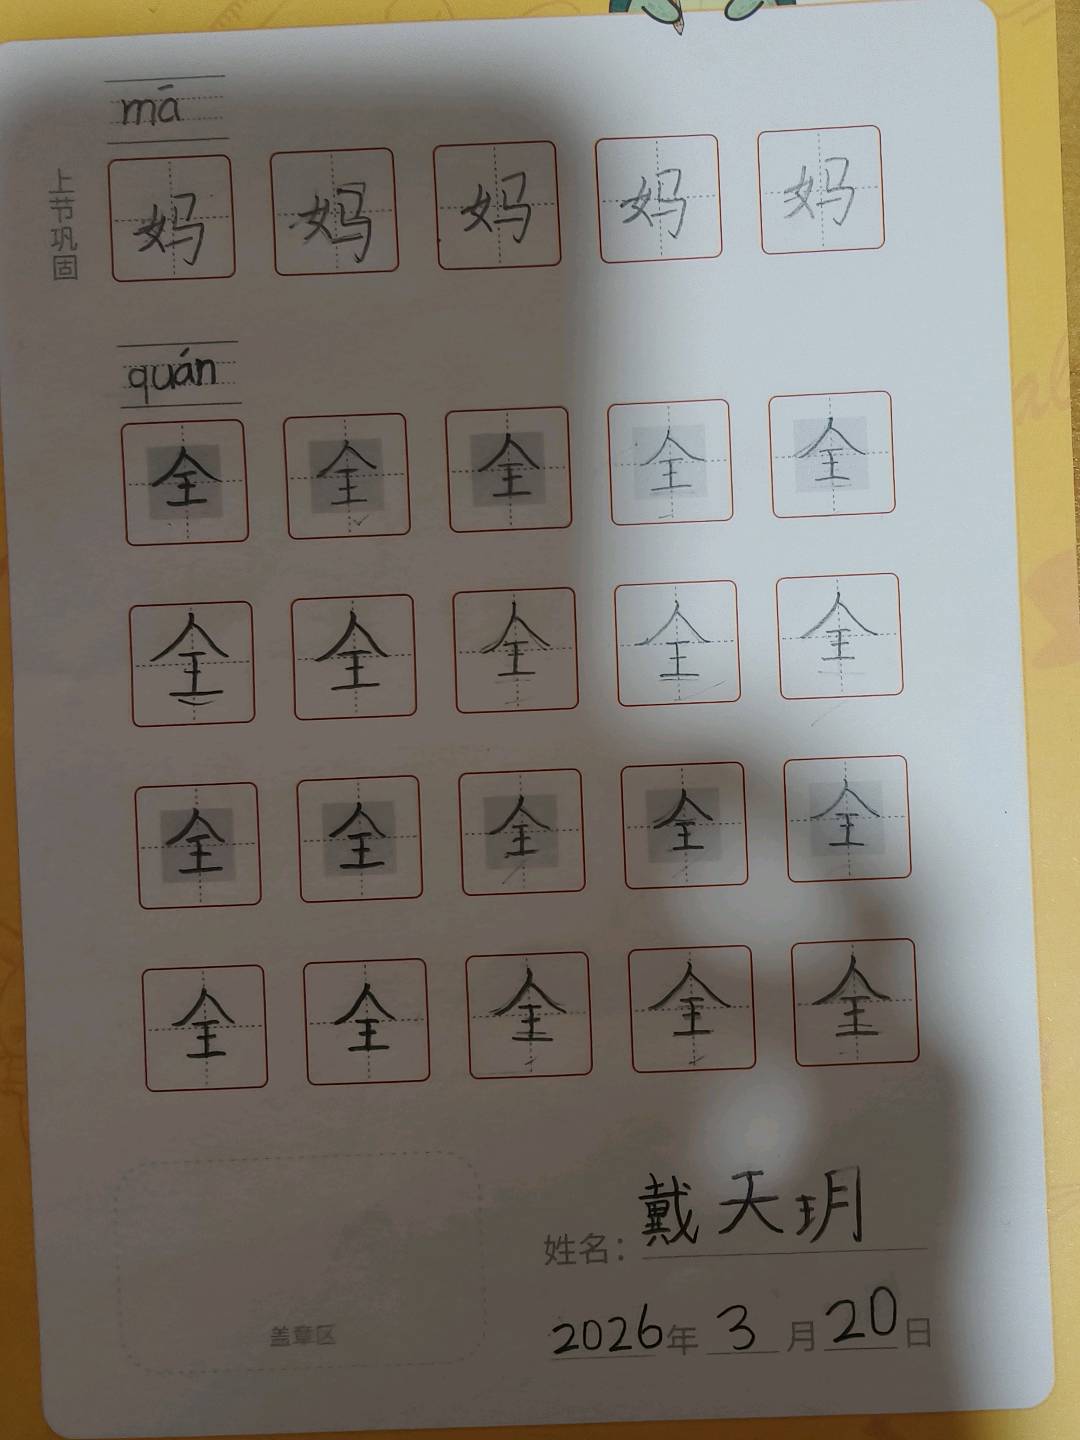 mā
上节巩固
妈 妈 妈 妈 妈
quán
全 全 全 全 全
全 全 全 全 全
全 全 全 全 全
全 全 全 全 全
姓名：戴天玥
盖章区
2026年 3 月 20 日